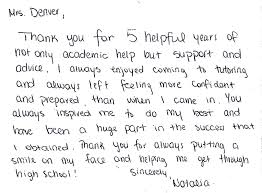 Mrs. Denver,
Thank you for 5 helpful years of
not only academic help but support and
advice. I always enjoyed coming to tutoring
and always left feeling more confident
and prepared, than when I came in. You
always inspired me to do my best and
have been a huge part in the success that
I obtained. Thank you for always putting a
smile on my face and helping me get through
high school! Sincerely,
Natasia